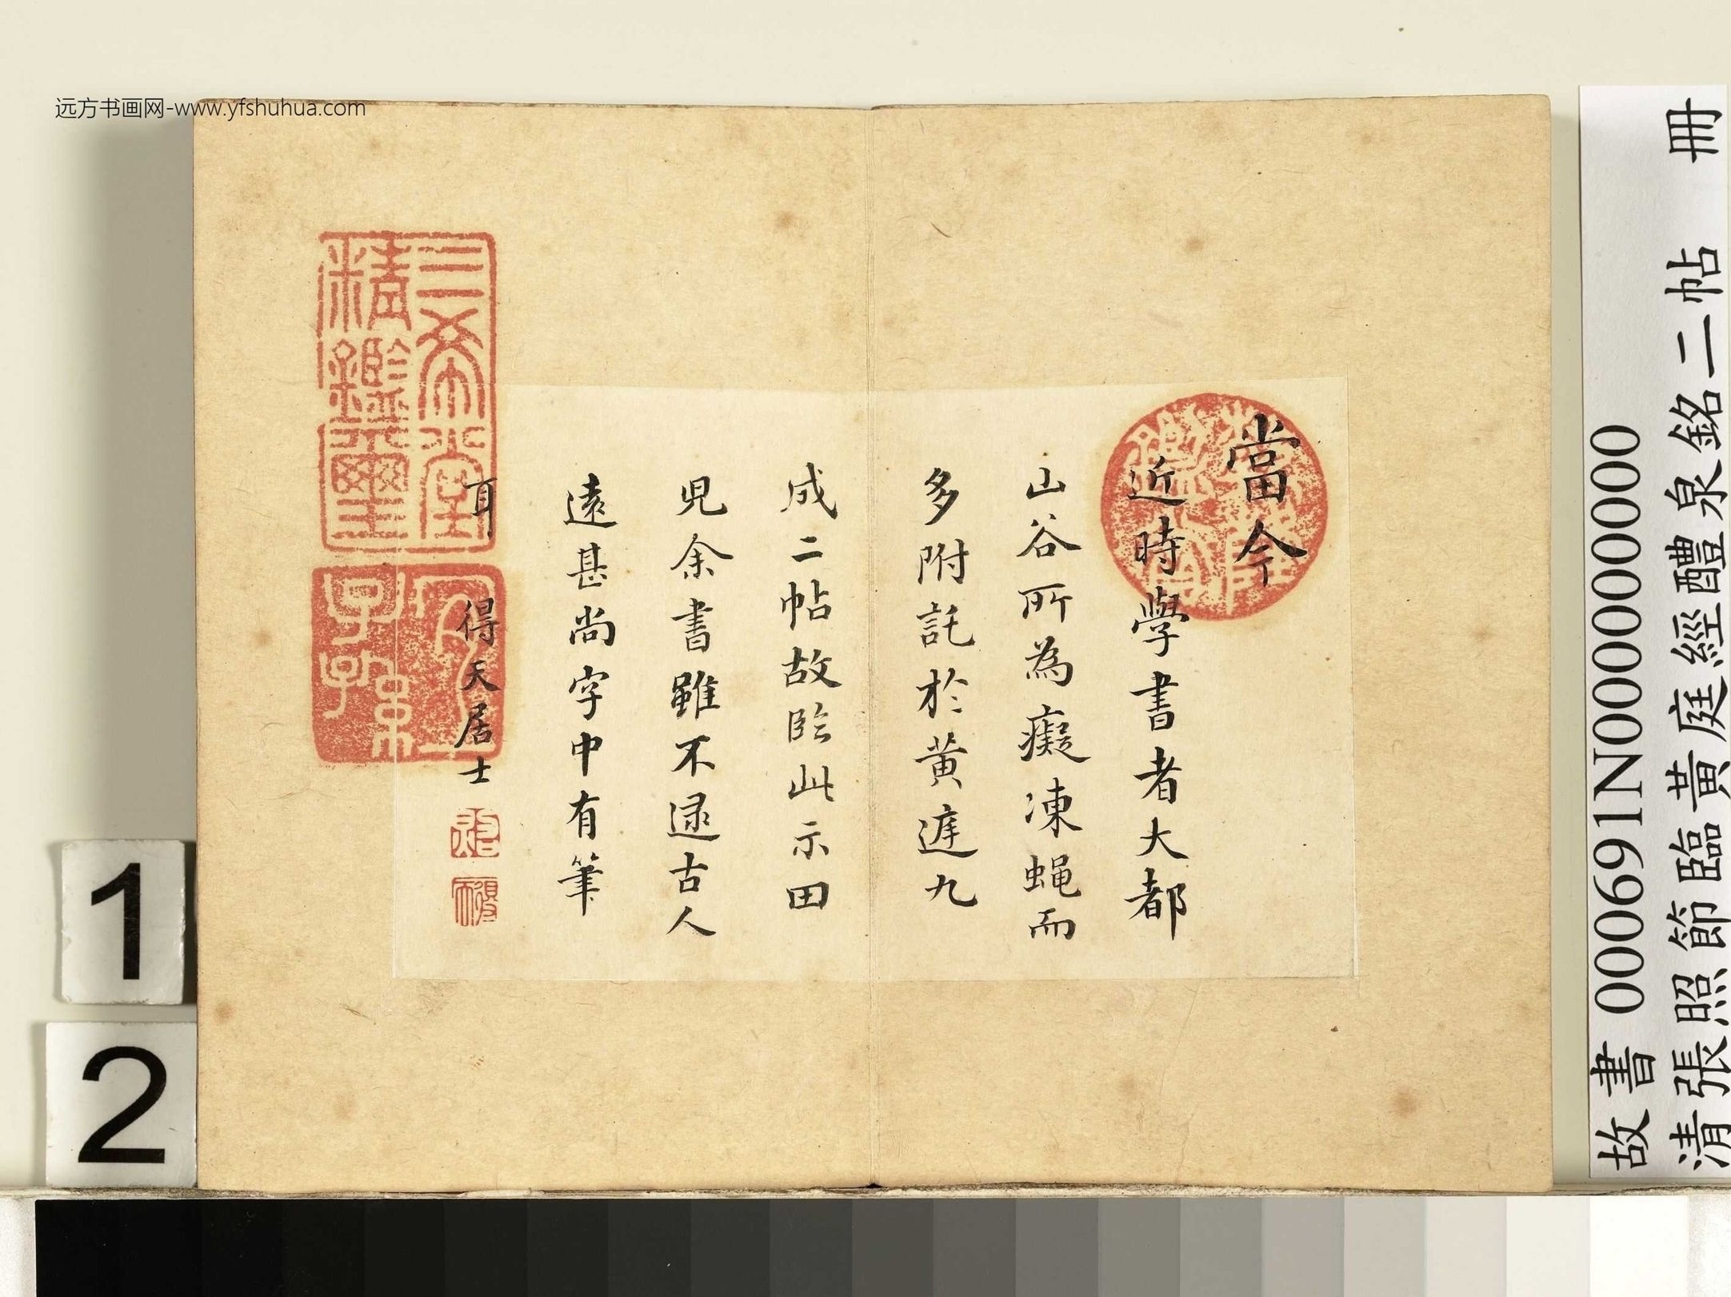 远方书画网-www.yfshuhua.com
故書 000691N000000000
清張照節臨黃庭經醴泉銘二帖 冊
當今
近時學書者大都
山谷所為癡凍蝇而
多附託於黃庭九
成二帖故臨此示田
児余書雖不逮古人
遠甚尚字中有筆
耳 得天居士
三希堂
精鑑璽
宜
子孫
1
2